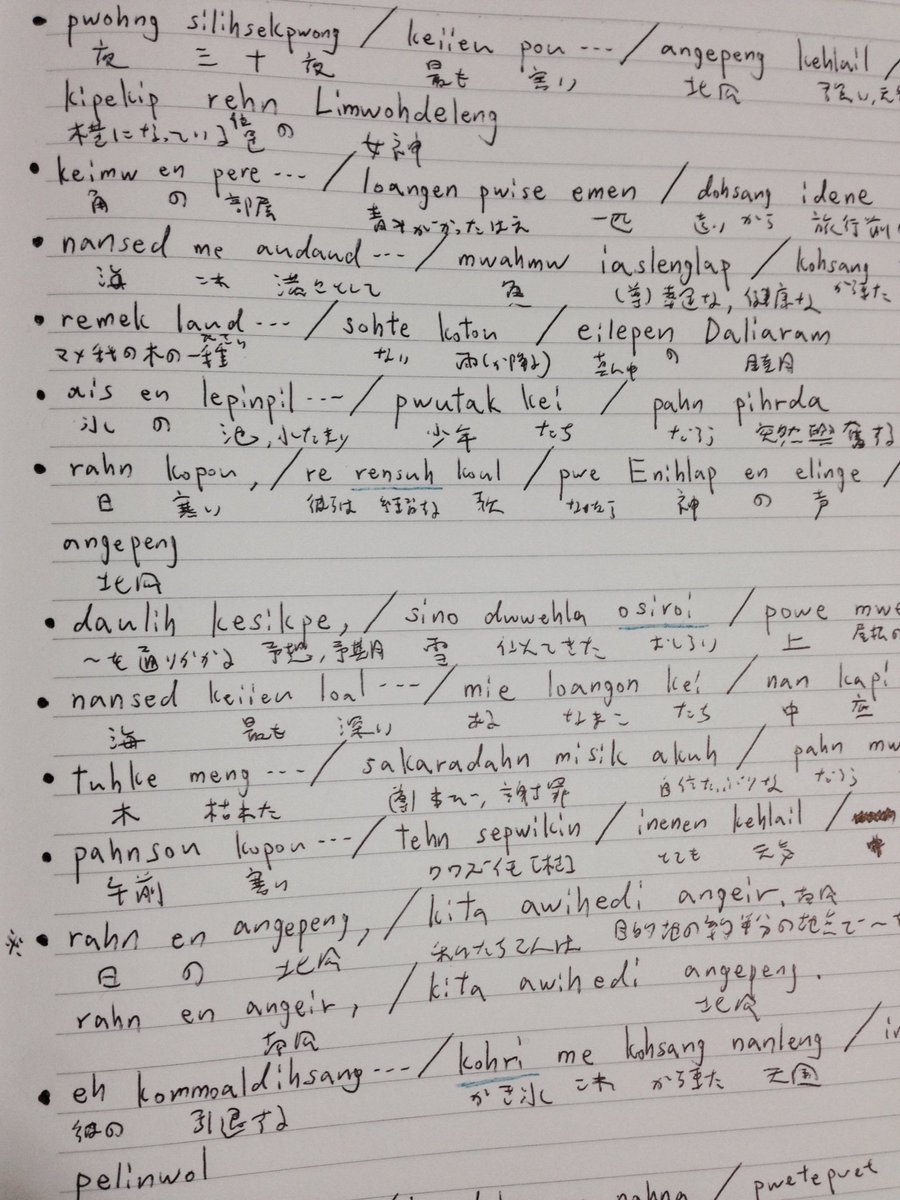 • pwohng silihsekpwong / keiieu pou ... / angepeng kehlail /
夜 三十夜 最も 寒い 北風 強い,元気
kipekip rehn Limwohdeleng
横になっている 色 の 女神
• keimw en pere ... / loangen pwise emen / dohsang idene
角 の 部屋 青みがかったはえ 一匹 遠い から 旅行前
• nansed me audaud ... / mwahmw iaslenglap / kohsang
海 これ 満々として 魚 (尊) 幸運な, 健康な から来た
• remek land ... / sohte kotou / eilepen Daliaram
マメ科の木の一種 ない 雨(が降る) 真ん中 の 睦月
• ais en lepinpil ... / pwutak kei / pahn pihrda
氷 の 池,水たまり 少年 たち だろう 突然興奮する
• rahn kopou, / re rensuh koul / pwe Enihlap en elinge /
日 寒い 彼らは 練習する 歌 なぜなら 神 の 声
angepeng
北風
• daulih kesikpe, / sino duwehla osiroi / powe
~を通りかかる 予想,予期 雪 似てきた おしろい 上 屋根の
• nansed keiieu loal ... / mie loangon kei / nan kapi
海 最も 深い ある なまこ たち 中 底
• tuhke meng ... / sakaradahn misik akuh / pahn
木 枯れた (尊) 謝罪 自信たっぷりな だろう
• pahnsou kopou ... / tehn sepwikin / inenen kehlail /
午前 寒い クワズイモ[枯] とても 元気
• rahn en angepeng, / kita awihedi angeir.
日 の 北風 私たち二人は 目的地の約半分の地点で~ 南風
rahn en angeir, / kita awihedi angepeng.
南風 北風
• eh kommoaldihsang ... / kohri me kohsang nanleng /
彼の 引退する かき氷 これ から来た 天国
pelinwol
pwetepwet